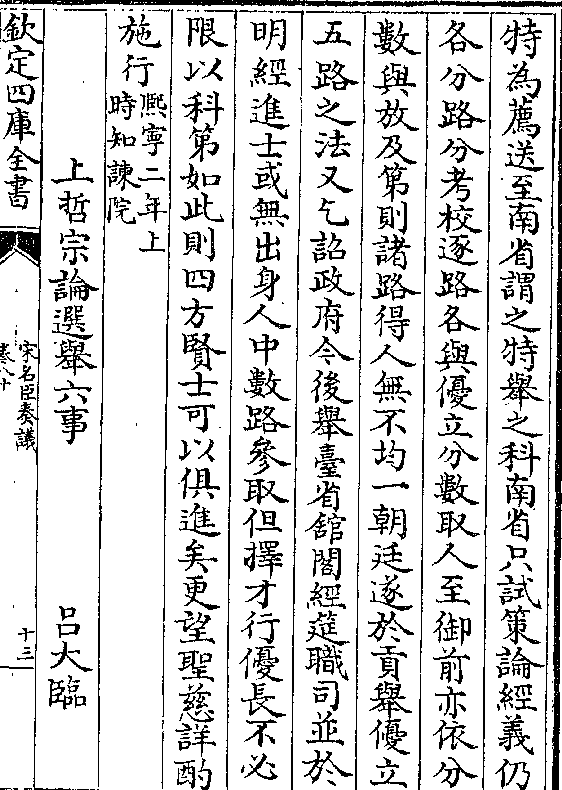 特為薦送至南省謂之特舉之科南省只試策論經義仍
各分路分考校逐路各與優立分數取人至御前亦依分
數與放及第則諸路得人無不均一朝廷遂於貢舉優立
五路之法又乞詔政府今後舉臺省舘閣經筵職司並於
明經進士或無出身人中數路參取但擇才行優長不必
限以科第如此則四方賢士可以俱進矣更望聖慈詳酌
施行熈寧二年上
時知諫院
上哲宗論選舉六事
吕大臨
欽定四庫全書
宋名臣奏議
卷八十
十三